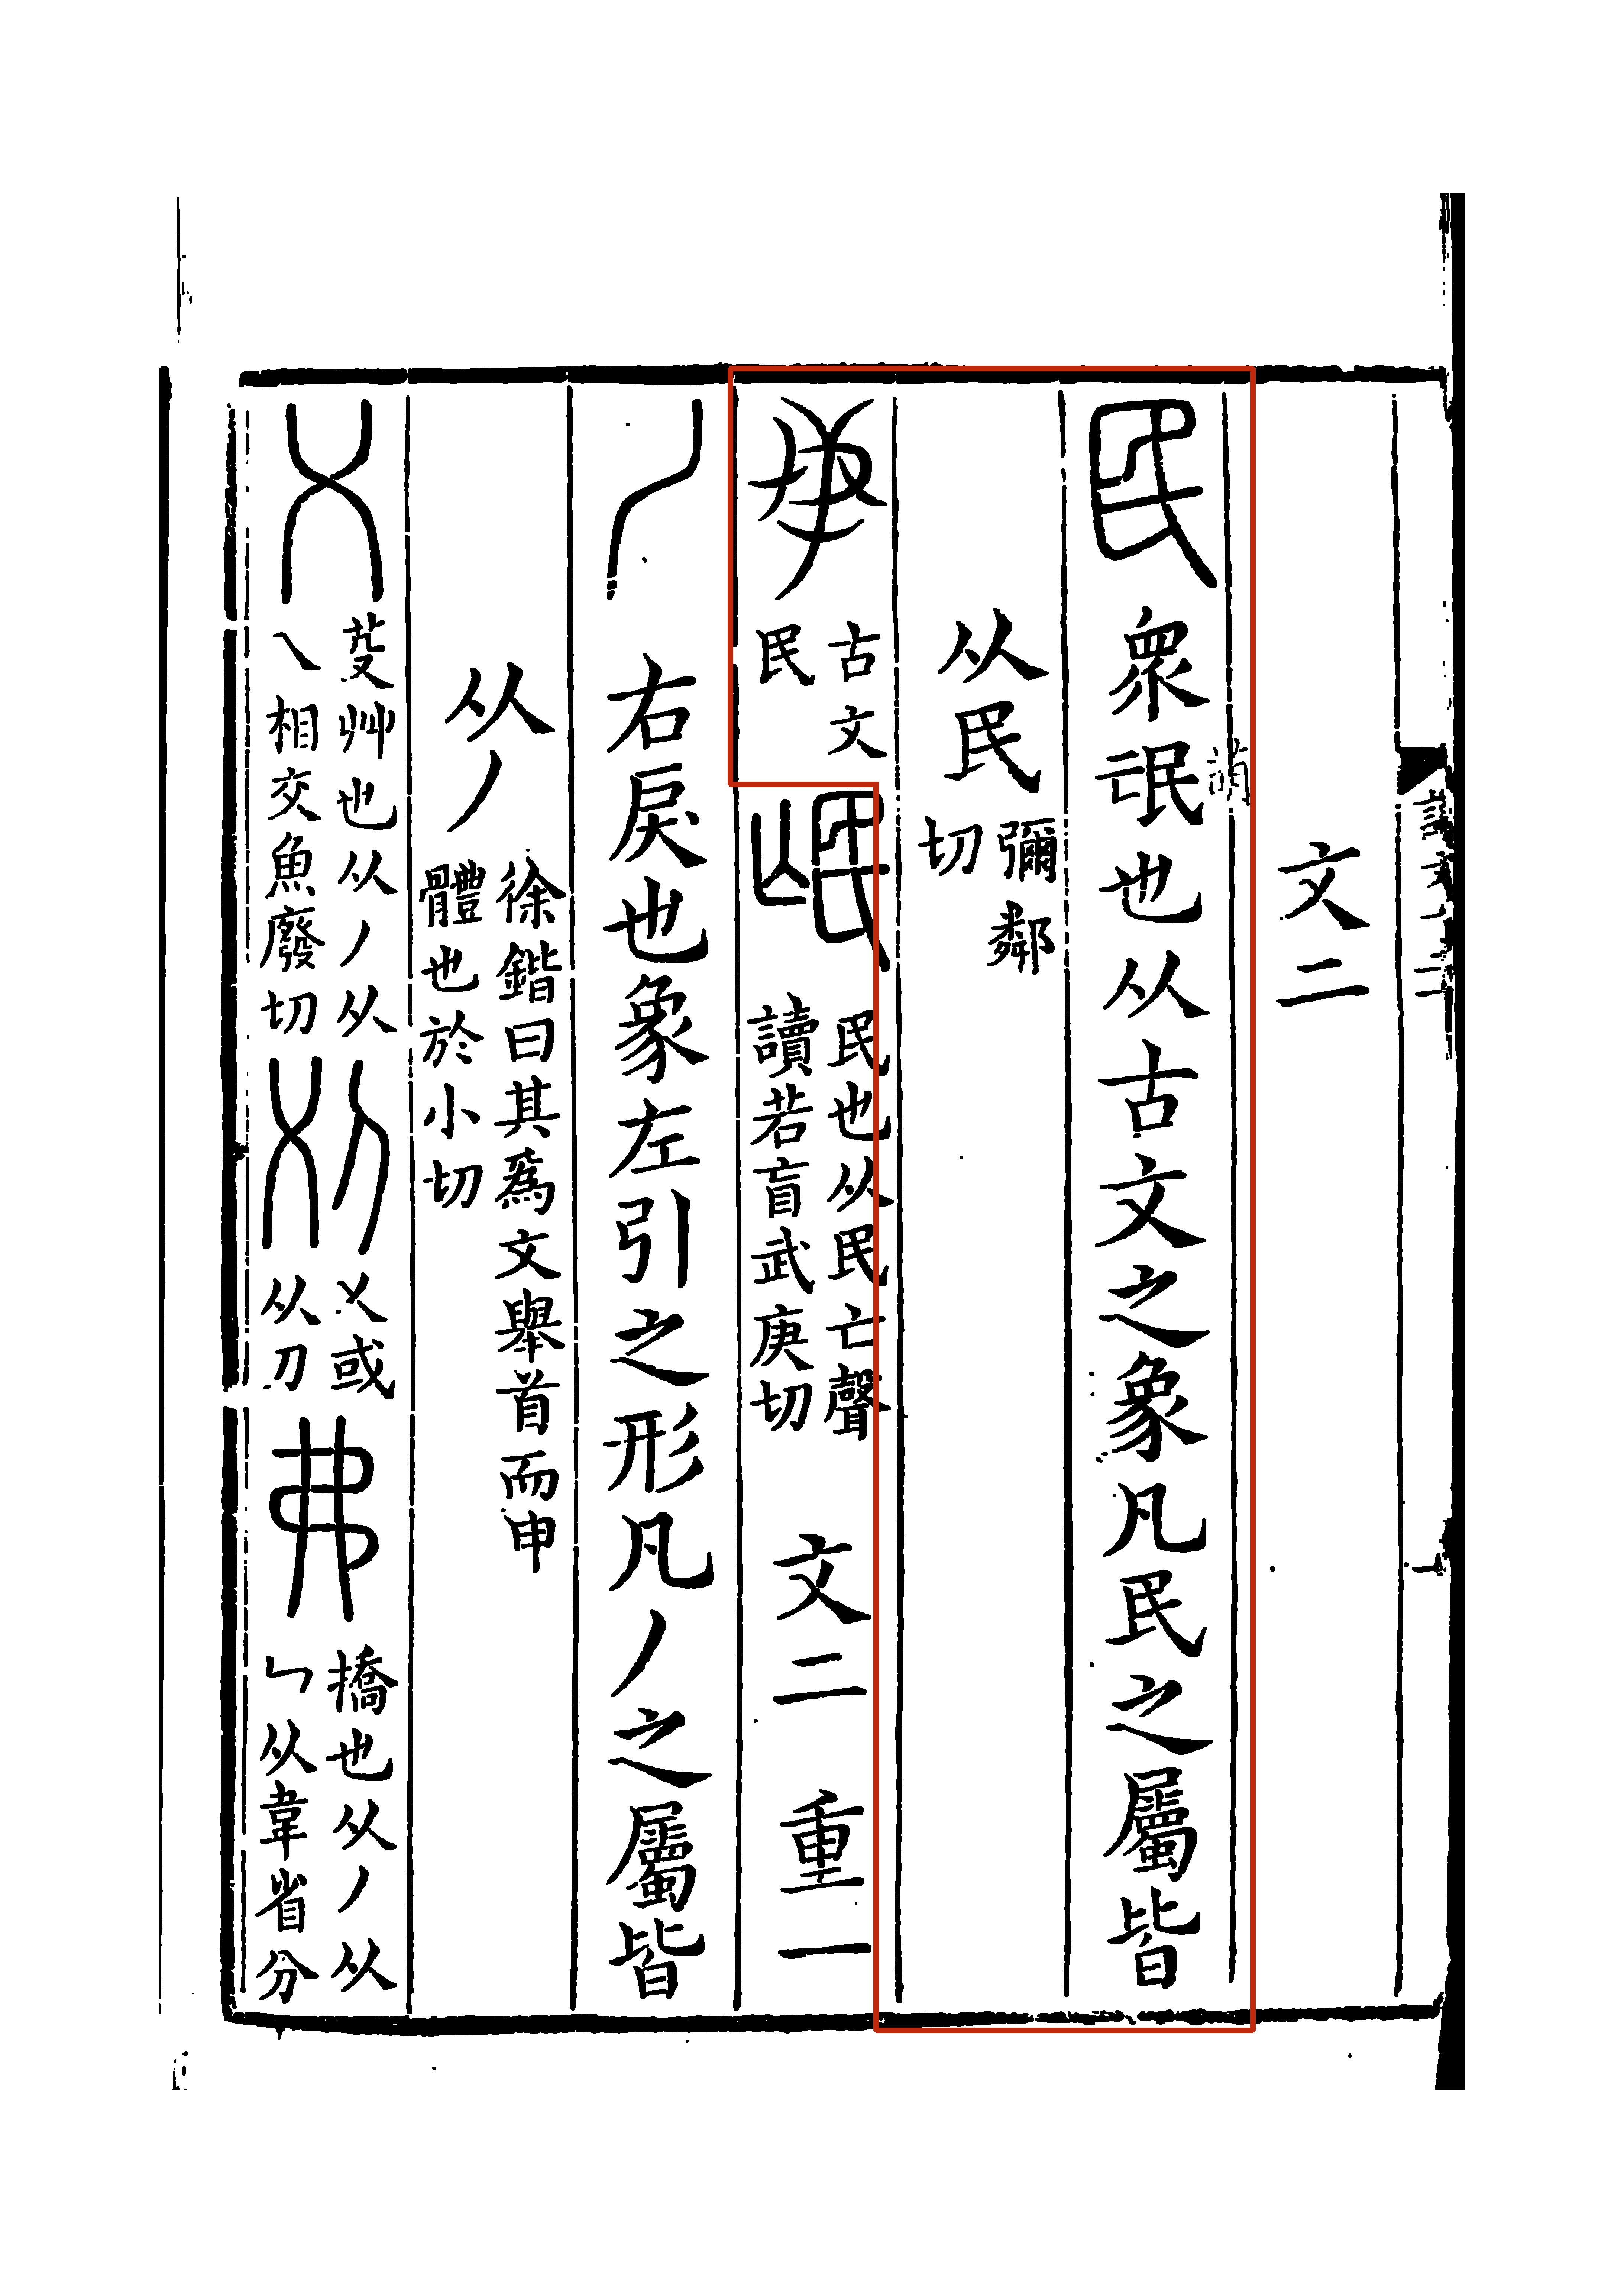 文二
民 衆氓也从古文之象凡民之屬皆
从民 彌鄰切
古文民 氓 民也从民亡聲讀若盲武庚切 文二 重一
丿 右戾也象左引之形凡丿之屬皆
从丿 徐鍇曰其爲文舉首而申體也於小切
乂 芟艸也从丿从乀相交魚廢切 刈 乂或从刀 弗 撟也从丿从乀从韋省分